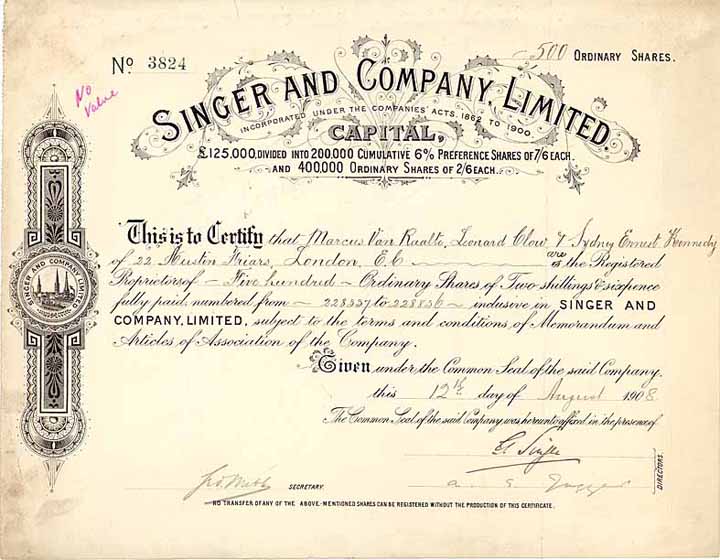 500 ORDINARY SHARES.
No. 3824
No Value
SINGER AND COMPANY LIMITED
INCORPORATED UNDER THE COMPANIES' ACTS, 1862 TO 1900.
CAPITAL,
£125,000, DIVIDED INTO 200,000 CUMULATIVE 6% PREFERENCE SHARES OF 7/6 EACH.
AND 400,000 ORDINARY SHARES OF 2/6 EACH.
This is to Certify that Marcus Van Raalte, Leonard Clow, & Sydney Ernest Kennedy
of 22 Austin Friars, London, E.C. are the Registered
Proprietors of Five hundred Ordinary Shares of Two shillings & sixpence
fully paid, numbered from 228337 to 228836 inclusive in SINGER AND
COMPANY, LIMITED, subject to the terms and conditions of Memorandum and
Articles of Association of the Company.
Given under the Common Seal of the said Company.
this 12th day of August 1908.
The Common Seal of the said Company was hereunto affixed in the presence of
SINGER AND COMPANY LIMITED
DIRECTORS.
SECRETARY.
NO TRANSFER OF ANY OF THE ABOVE-MENTIONED SHARES CAN BE REGISTERED WITHOUT THE PRODUCTION OF THIS CERTIFICATE.